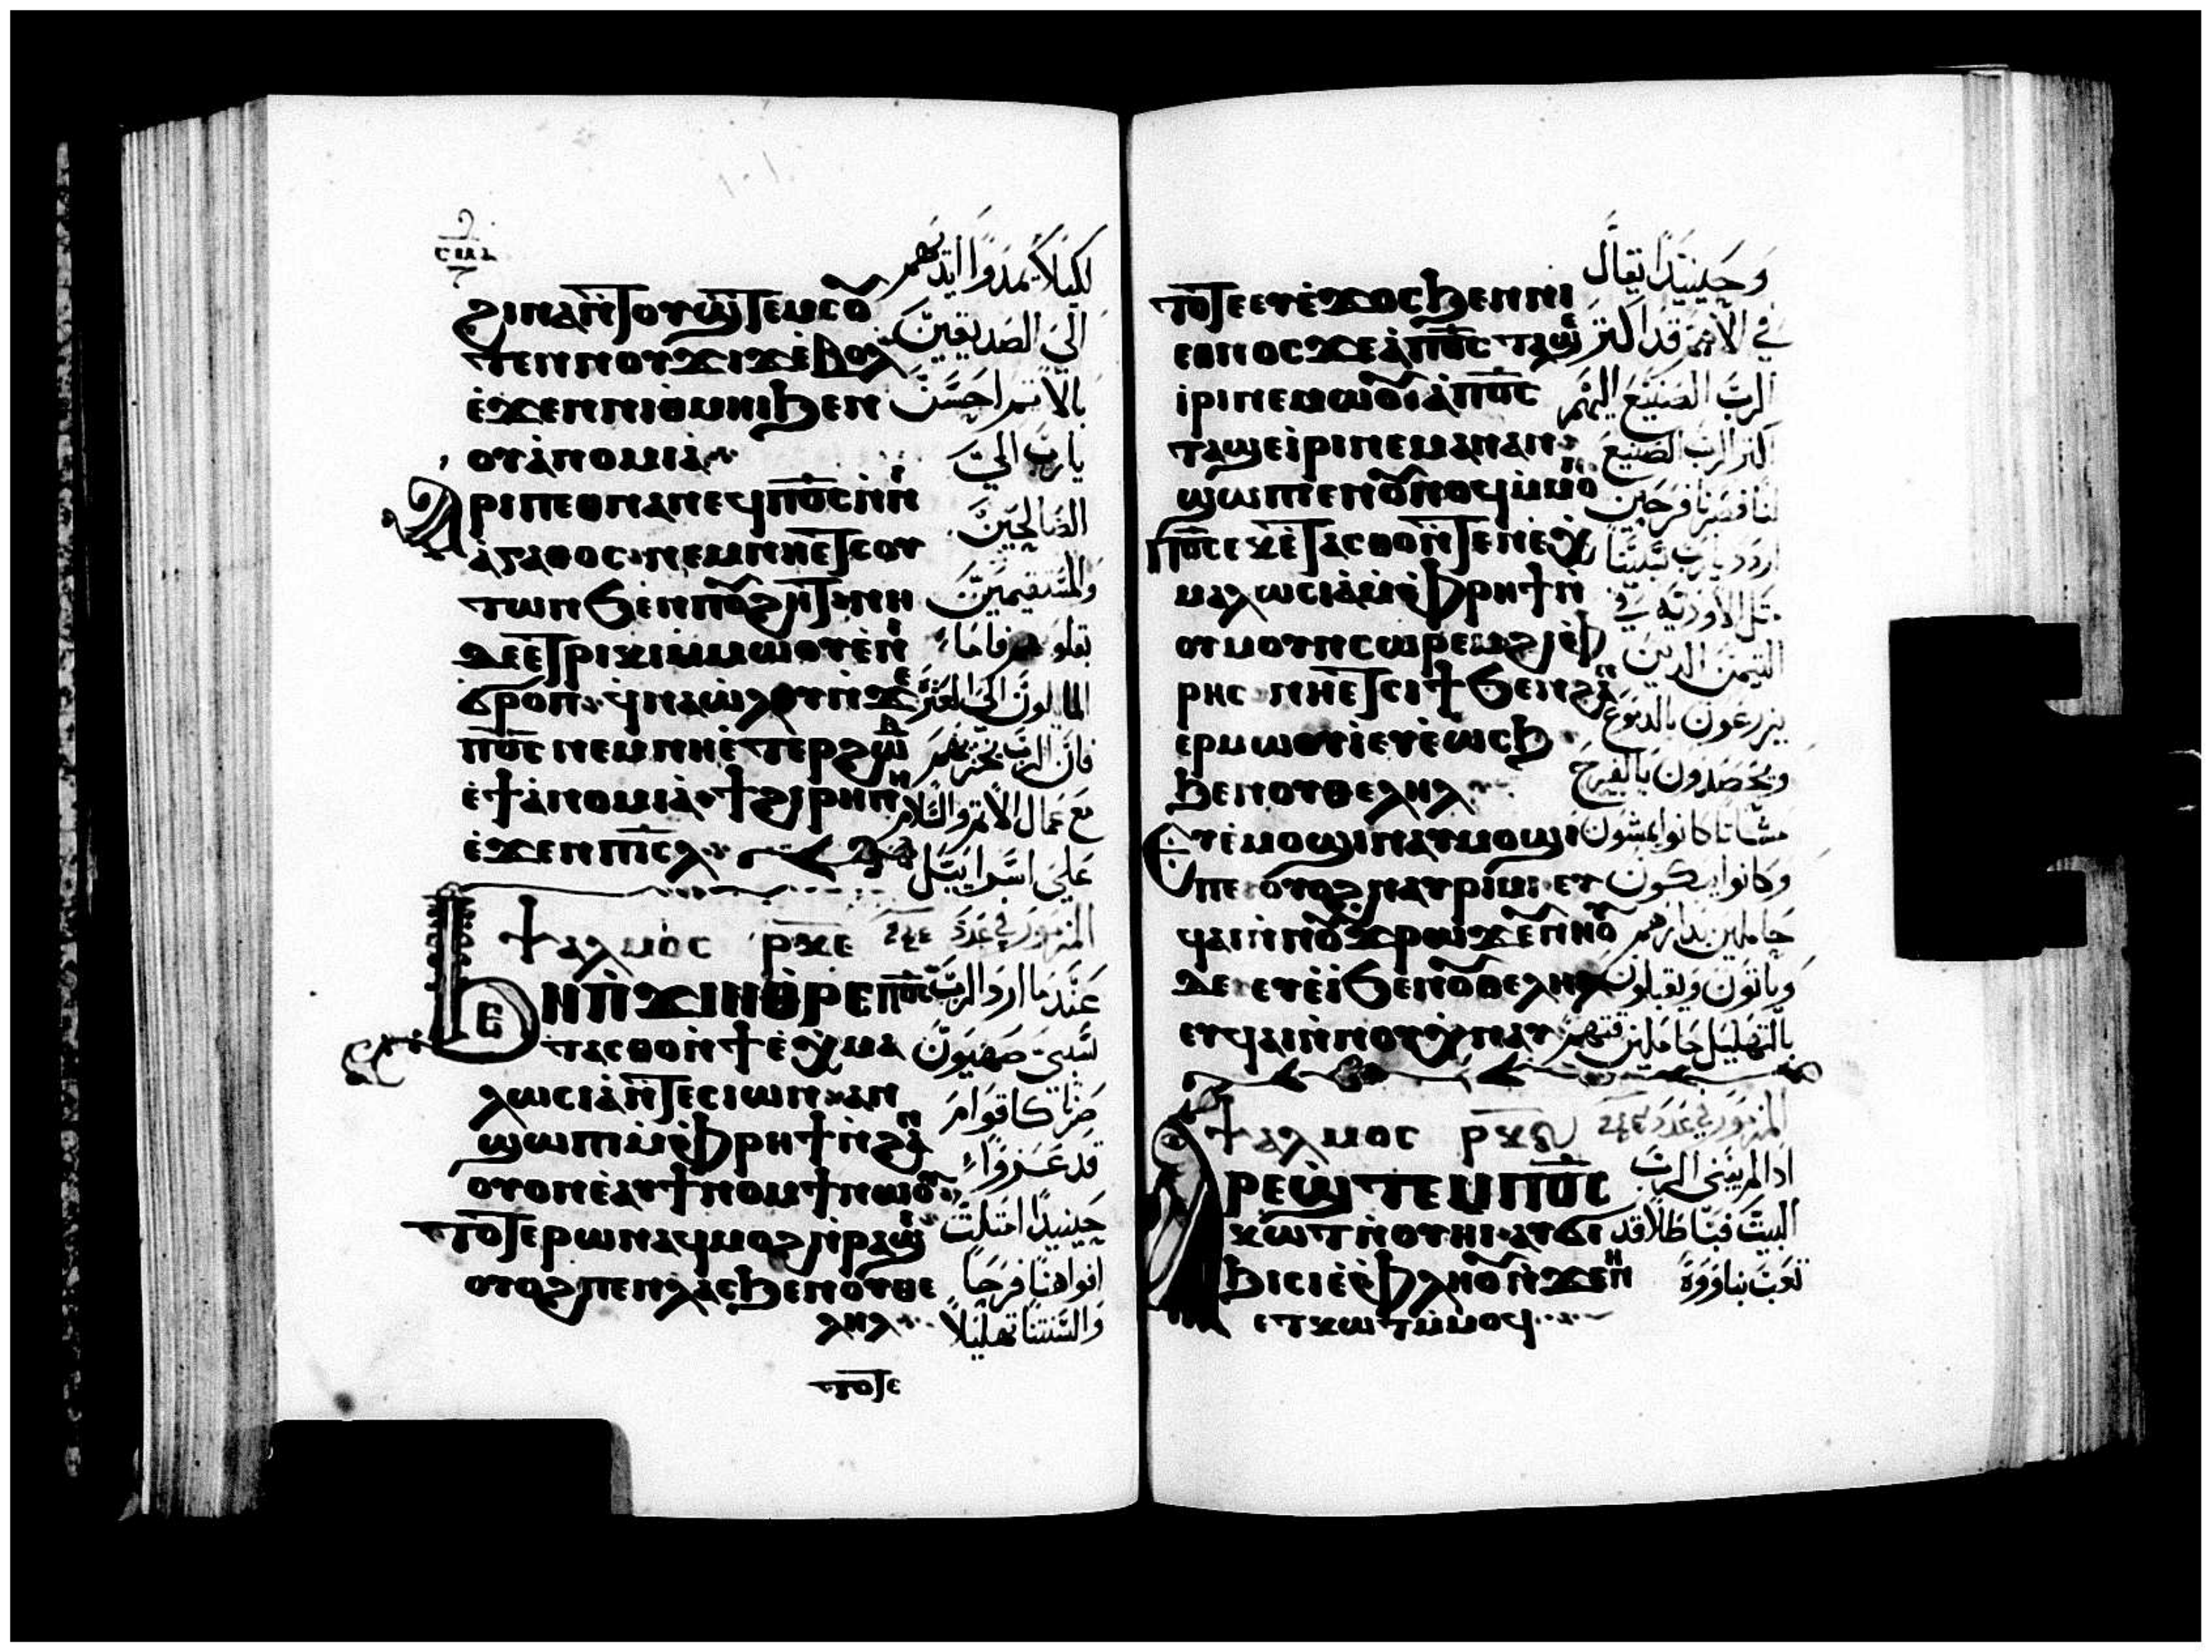 ϩⲓⲛⲁⲛ̀ⲧⲟⲩϣⲧⲉⲙⲥⲟ
ⲧⲉⲛⲛⲟⲩϫⲓϫⲉ̀ⲃⲟⲗ
ⲉ̀ϫⲉⲛⲛⲓⲑⲙⲏⲓϧⲉⲛ
ⲟⲩⲁ̀ⲛⲟⲙⲓⲁ̀
ⲁⲣⲓⲡⲉⲑⲛⲁⲛⲉϥⲡ̅ⲟ̅ⲥ̅ⲛ̀ⲛⲓ
ⲁ̀ⲅⲁⲑⲟⲥ ⲛⲉⲙⲛⲏⲉⲧⲥⲟⲩ
ⲧⲱⲛϧⲉⲛⲡⲟⲩϩⲏⲧ ⲛⲏ
ⲇⲉⲉⲧⲣⲓⲕⲓⲙ̀ⲙⲱⲟⲩⲉ̀ⲛⲓ
ϭⲣⲟⲡ ϥⲛⲁⲱ̀ⲗⲟⲩⲛ̀ϫⲉ
ⲡ̅ⲟ̅ⲥ̅ ⲛⲉⲙⲛⲏⲉ̀ⲧⲉⲣϩⲱⲃ
ⲉ̀ϯⲁ̀ⲛⲟⲙⲓⲁ̀ ϯϩⲓⲣⲏⲛⲏ
ⲉ̀ϫⲉⲛⲡⲓⲥ̅ⲗ̅
لكيلا يمدوا ايديهم
الي الصديقين
بالاثم احسن
يا رب الي
الصالحين
والمستقيمين
بقلوبهم فاما
المايلون الي العثرة
فان الرب يخزيهم
مع عمال الاثم والسلام
علي اسراييل
ⲯⲁⲗⲙⲟⲥ ⲣⲕⲉ
المزمور في عدد
ϧⲉⲛⲡ̀ϫⲓⲛⲑⲣⲉⲡ̅ⲟ̅ⲥ̅
ⲧⲁⲥⲑⲟⲛ̀ϯⲉ̀ⲭⲙⲁ
ⲗⲱⲥⲓⲁ̀ⲛ̀ⲧⲉⲥⲓⲱⲛ ⲁⲛ
ϣⲱⲡⲓⲙ̀ⲫⲣⲏϯⲛ̀ϩⲁⲛ
ⲟⲩⲟⲛⲉ̀ⲁⲩϯⲛⲟⲙϯⲛⲱⲟⲩ
ⲧⲟⲧⲉⲣⲱⲛⲁϥⲙⲟϩⲛ̀ⲣⲁϣⲓ
ⲟⲩⲟϩⲡⲉⲛⲗⲁⲥϧⲉⲛⲟⲩⲑⲉ
ⲗⲏⲗ
ⲧⲟⲧⲉ
عندما ارد الرب
سبي صهيون
صرنا كاقوام
قد عزوا
حينيذا امتلت
افواهنا فرحا
والسنتنا تهليلا
ⲧⲟⲧⲉⲉⲩⲉ̀ϫⲟⲥϧⲉⲛⲛⲓ
ⲉⲑⲛⲟⲥϫⲉⲁ̀ⲡ̅ⲟ̅ⲥ̅ ⲧⲁϣⲉ
ⲓ̀ⲣⲓⲛⲉⲙⲱⲟⲩⲁ̀ⲡ̅ⲟ̅ⲥ̅
ⲧⲁϣⲉⲓ̀ⲣⲓⲛⲉⲙⲁⲛⲁⲛ
ϣⲱⲡⲓⲉⲛⲟⲩⲛⲟϥⲙ̀ⲙⲟⲛ
ⲡ̅ⲟ̅ⲥ̅ⲉⲕⲉ̀ⲧⲁⲥⲑⲟⲛ̀ⲧⲉⲛⲉⲭ
ⲙⲁⲗⲱⲥⲓⲁ̀ⲙ̀ⲫⲣⲏϯⲛ̀
ⲟⲩⲙⲟⲩⲛⲥⲱⲣⲉⲙϩⲓⲫ
ⲣⲏⲥ ⲛⲏⲉⲧⲥⲓϯϧⲉⲛϩⲁⲛ
ⲉⲣⲙⲱⲟⲩⲓ̀ⲉⲩⲉ̀ⲱⲥϧ
ϧⲉⲛⲟⲩⲑⲉⲗⲏⲗ
ⲉⲩⲉ̀ⲙⲟϣⲓⲛⲁⲩⲙⲟϣⲓ
ⲡⲉ ⲟⲩⲟϩⲛⲁⲩⲣⲓⲙⲓ ⲉⲩ
ϥⲁⲓⲛ̀ⲛⲟⲩϫⲣⲱϫⲉⲛⲛⲟⲩ
ⲇⲉ ⲉⲩⲉ̀ⲓ̀ϧⲉⲛⲟⲩⲑⲉⲗⲏⲗ
ⲉⲩϥⲁⲓⲛ̀ⲛⲟⲩⲭⲛⲁⲩ
وحينيذا يقال
في الامم قد اكثر
الرب الصنيع اليهم
اكثر الرب الصنيع
لنا فصرنا فرحين
اردد يا رب سبينا
مثل الاودية في
التيمن الذين
يزرعون بالدموع
ويحصدون بالفرح
مشيا كانوا يمشون
وكانوا يبكون
حاملين بذارهم
وياتون ويقبلون
بالتهليل حاملين
ⲯⲁⲗⲙⲟⲥ ⲣⲕ
المزمور في عدد
ⲁⲣⲉϣⲧⲉⲙⲡ̅ⲟ̅ⲥ̅
ⲕⲱⲧⲛ̀ⲟⲩⲏⲓ ⲁⲩϭⲓ
ϧⲓⲥⲓⲉ̀ⲫⲗⲏⲟⲩⲛ̀ϫⲉⲛⲏ
ⲉⲧⲕⲱⲧⲙ̀ⲙⲟϥ
اذا لم يبني الرب
البيت فباطلا قد
تعب بناووه